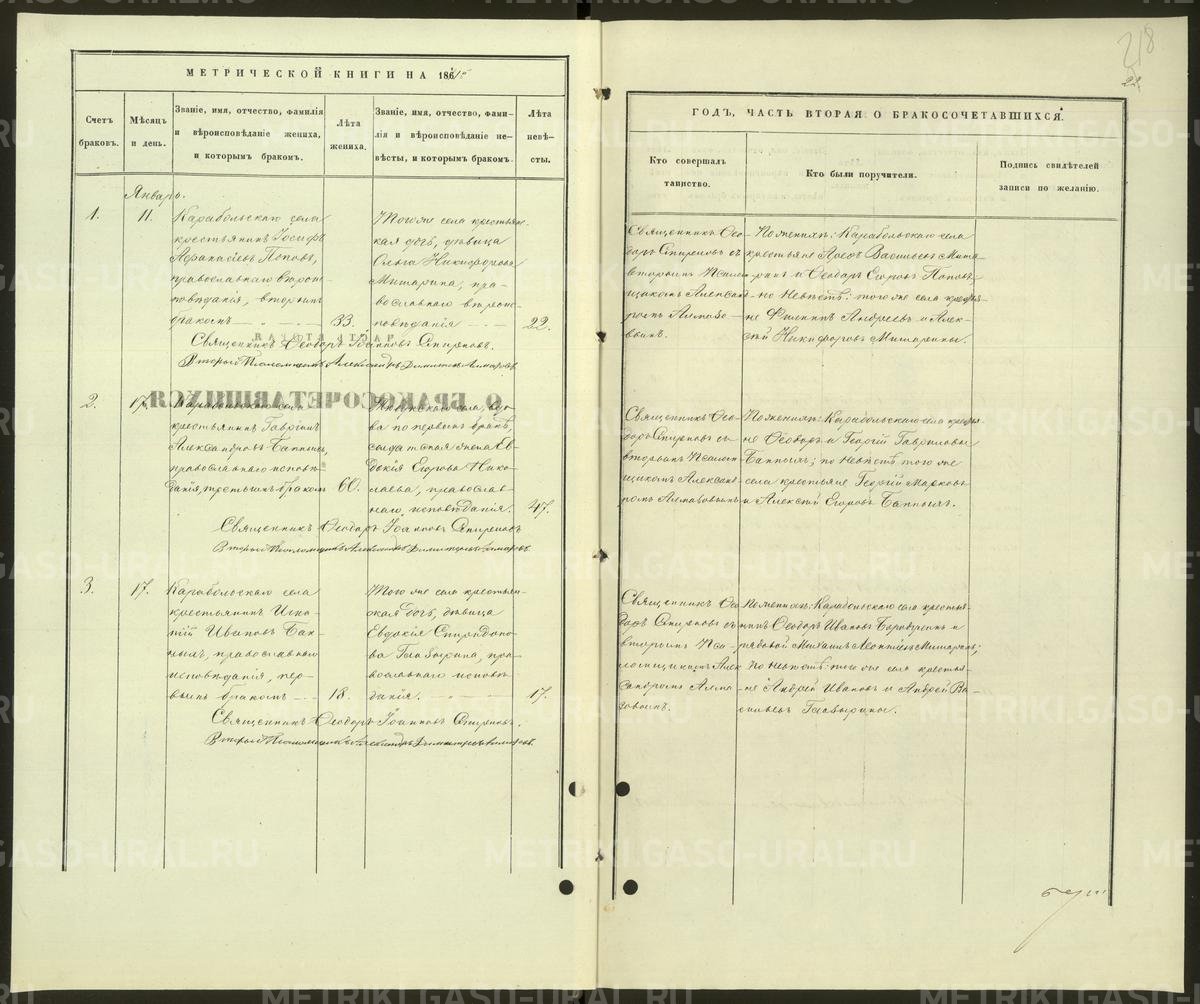 МЕТРИЧЕСКОЙ КНИГИ НА 186
Счетъ браковъ.
Мѣсяцъ и день.
Званіе, имя, отчество, фамилія
и вѣроисповѣданіе жениха,
и которымъ бракомъ.
Лѣта
жениха.
Званіе, имя, отчество, фами-
лія и вѣроисповѣданіе не-
вѣсты, и которымъ бракомъ.
Лѣта
невѣ-
сты.
Январь.
1.
11.
Карабольскаго села
крестьянинъ Іосифъ
Афанасіевъ Поповъ,
православнаго вѣроис-
повѣданія, вторымъ
бракомъ
33.
Того же села крестьян-
ская дочь, дѣвица
Ольга Никифорова
Мишарина, пра-
вославнаго вѣроис-
повѣданія
22.
Священникъ Ѳеодоръ Іоанновъ Спиреновъ.
Второй Псаломщикъ Александръ Димитріевъ
2.
17.
Карабольскаго села
крестьянинъ Гавріилъ
Александровъ
православнаго исповѣ-
данія, третьимъ бракомъ
60.
села, вдо-
ва по первомъ бракѣ,
солдатская жена Ев-
докія Егорова Нико-
лаева, православ-
наго исповѣданія.
47.
Священникъ Ѳеодоръ Іоанновъ Спиреновъ
Второй Псаломщикъ Александръ Димитріевъ
3.
17.
Карабольскаго села
крестьянинъ Игна-
тій Ивановъ
православнаго
исповѣданія, пер-
вымъ бракомъ
18.
Того же села крестьян-
ская дочь, дѣвица
Евдокія Спиридоно-
ва пра-
вославнаго исповѣ-
данія.
17.
Священникъ Ѳеодоръ Іоанновъ Спиреновъ.
Второй Псаломщикъ Александръ Димитріевъ
О БРАКОСОЧЕТАВШИХСЯ
218
22.
ГОДЪ, ЧАСТЬ ВТОРАЯ О БРАКОСОЧЕТАВШИХСЯ.
Кто совершалъ
таинство.
Кто были поручители.
Подпись свидѣтелей
записи по желанію.
Священникъ Ѳео-
доръ Спиреновъ съ
вторымъ Псалом-
щикомъ Алексан-
дромъ
По женихѣ: Карабольскаго села
крестьяне Васильевъ Миша-
ринъ и Ѳеодоръ Поповъ,
по невѣстѣ: того же села крестья-
не Филиппъ Андреевъ и Алек-
сѣй Никифоровъ Мишарины.
Священникъ Ѳео-
доръ Спиреновъ съ
вторымъ Псалом-
щикомъ Алексан-
дромъ
По женихѣ: Карабольскаго села крестья-
не Ѳеодоръ и Георгій Гавриловы
по невѣстѣ: того же
села крестьяне Георгій Марковъ
и Алексѣй Егоровъ
Священникъ Ѳео-
доръ Спиреновъ съ
вторымъ Пса-
ломщикомъ Алек-
сандромъ
По женихѣ: Карабольскаго села крестья-
нинъ Ѳеодоръ Ивановъ и
рядовой Михаилъ Леонтіевъ
по невѣстѣ: того же села крестья-
не Андрей Ивановъ и Андрей Ва-
сильевъ
METRIKI.GASO-URAL.RU